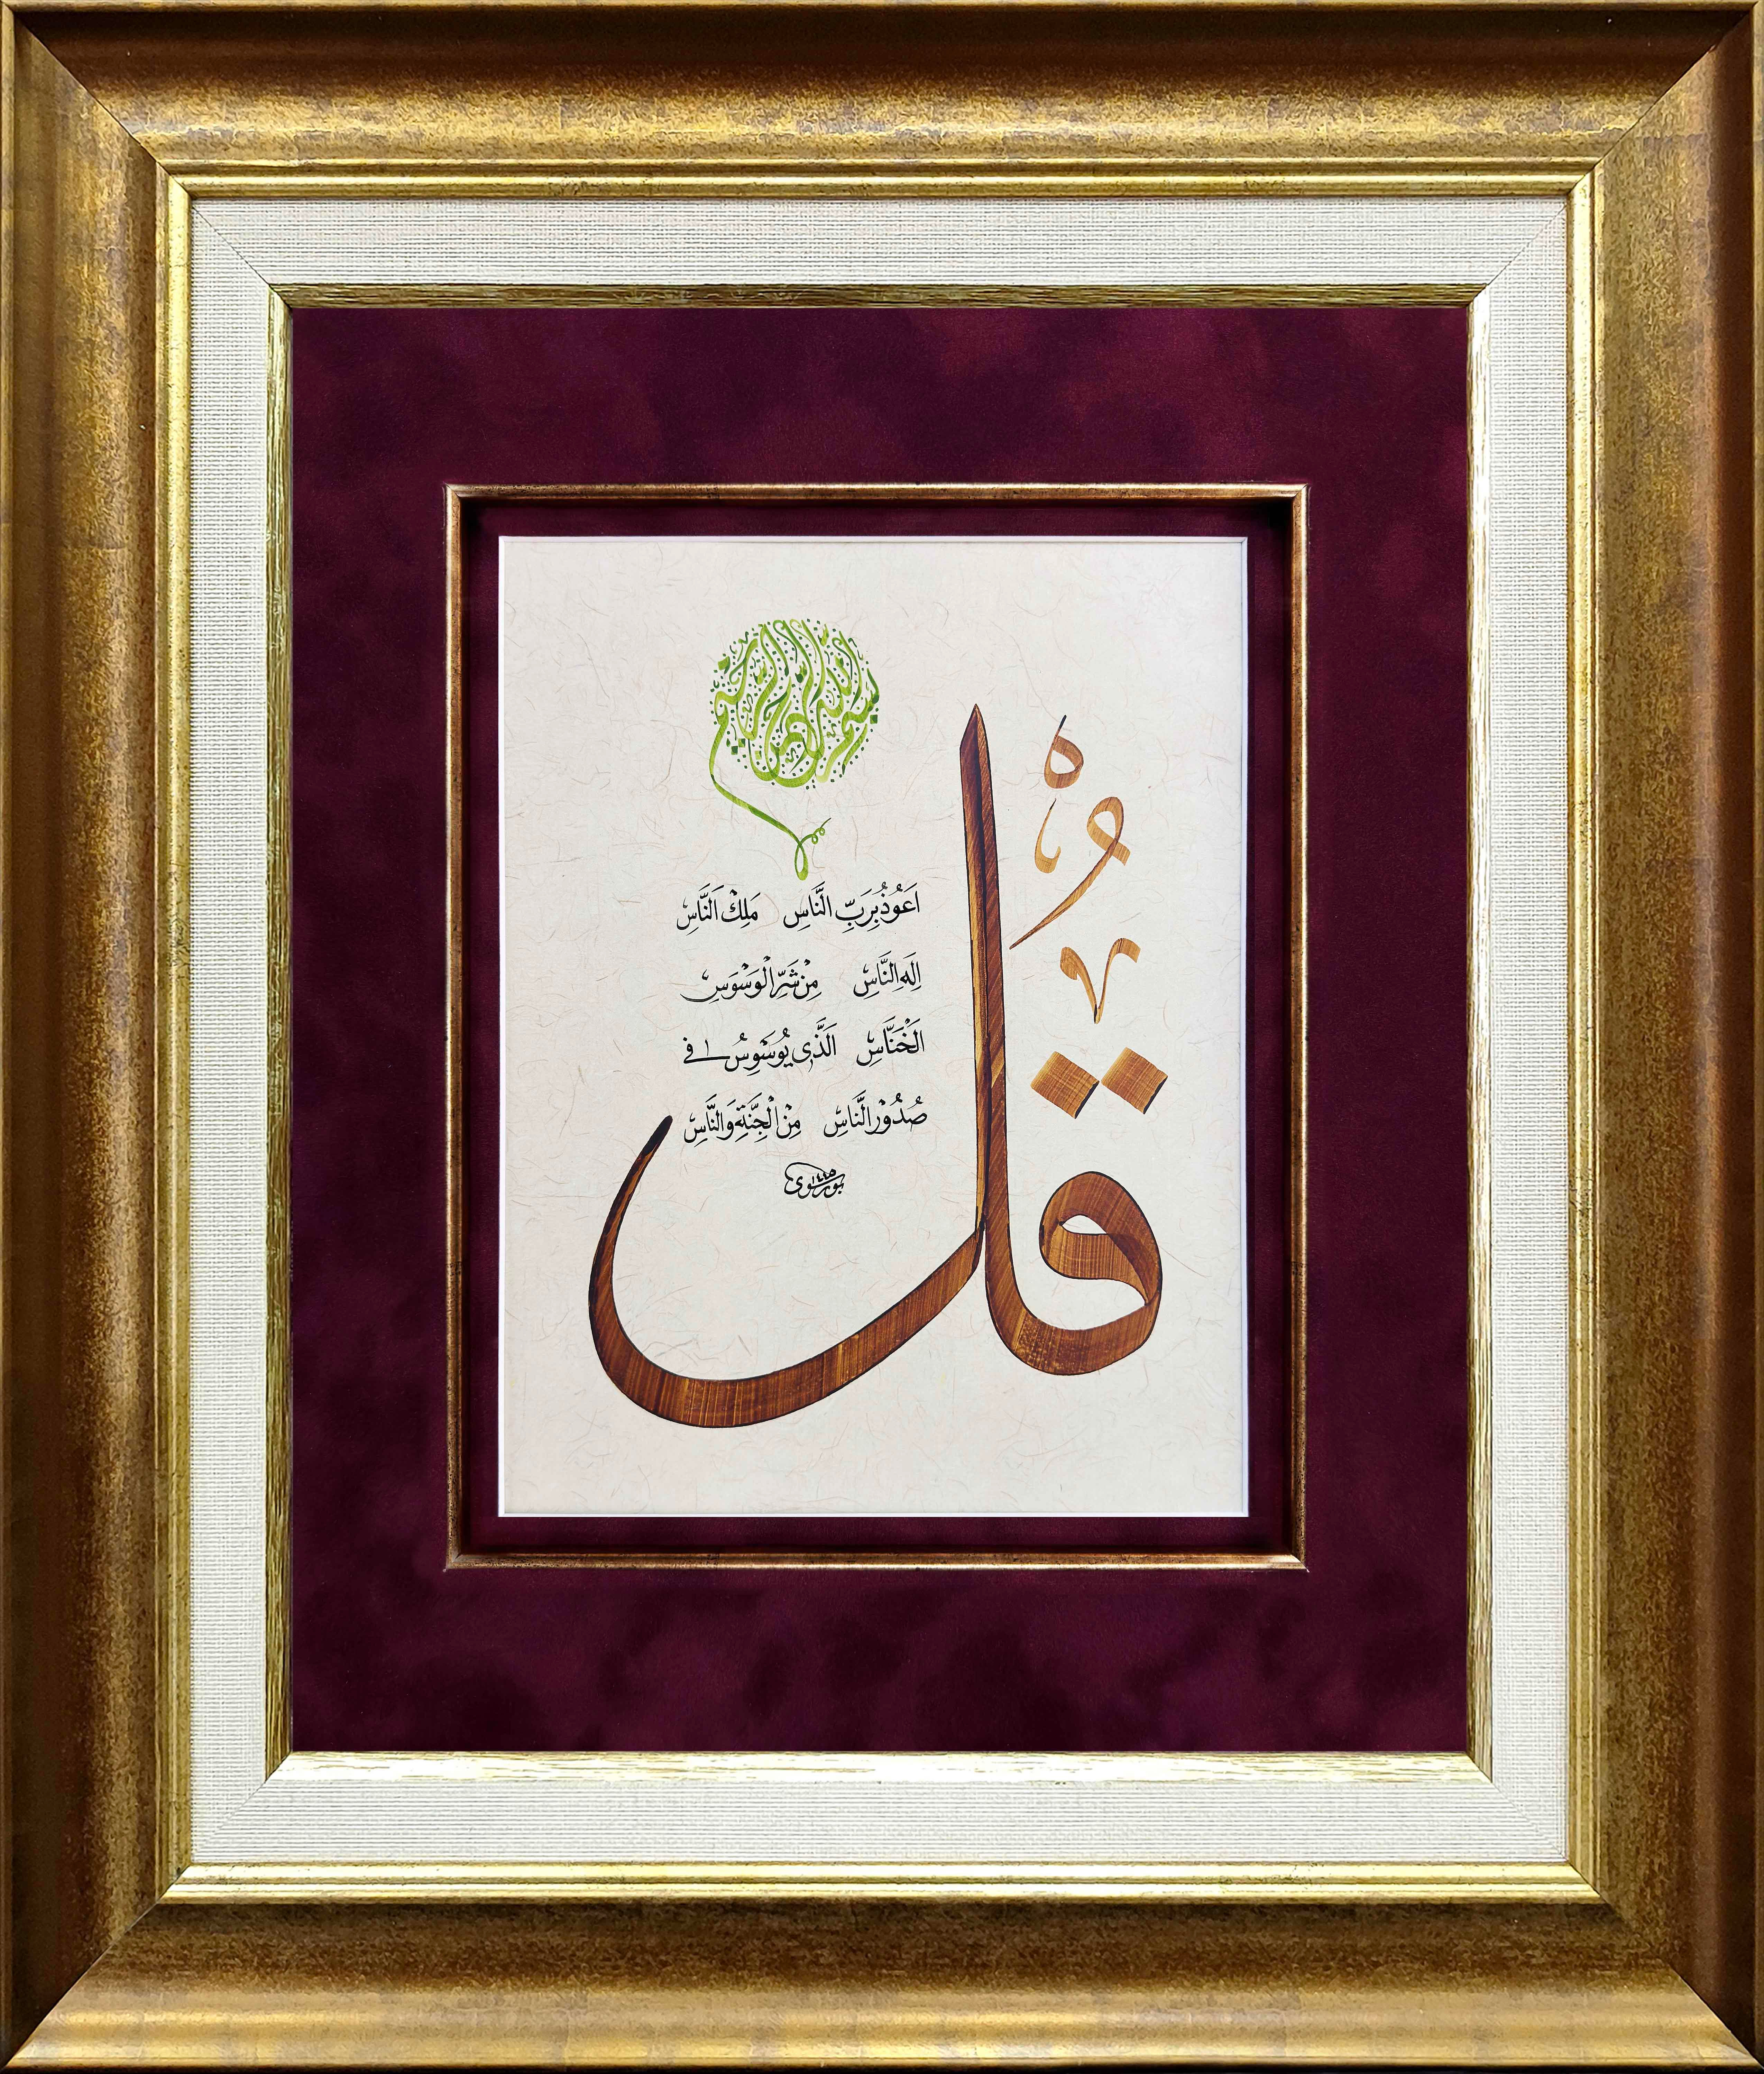 بسم الله الرحمن الرحيم
قُلْ
اَعُوذُ بِرَبِّ النَّاسِ مَلِكِ النَّاسِ
اِلَهِ النَّاسِ مِنْ شَرِّ الْوَسْوَسِ
الْخَنَّاسِ اَلَّذِي يُوَسْوِسُ فِي
صُدُورِ النَّاسِ مِنَ الْجِنَّةِ وَالنَّاسِ
١٤٤٥